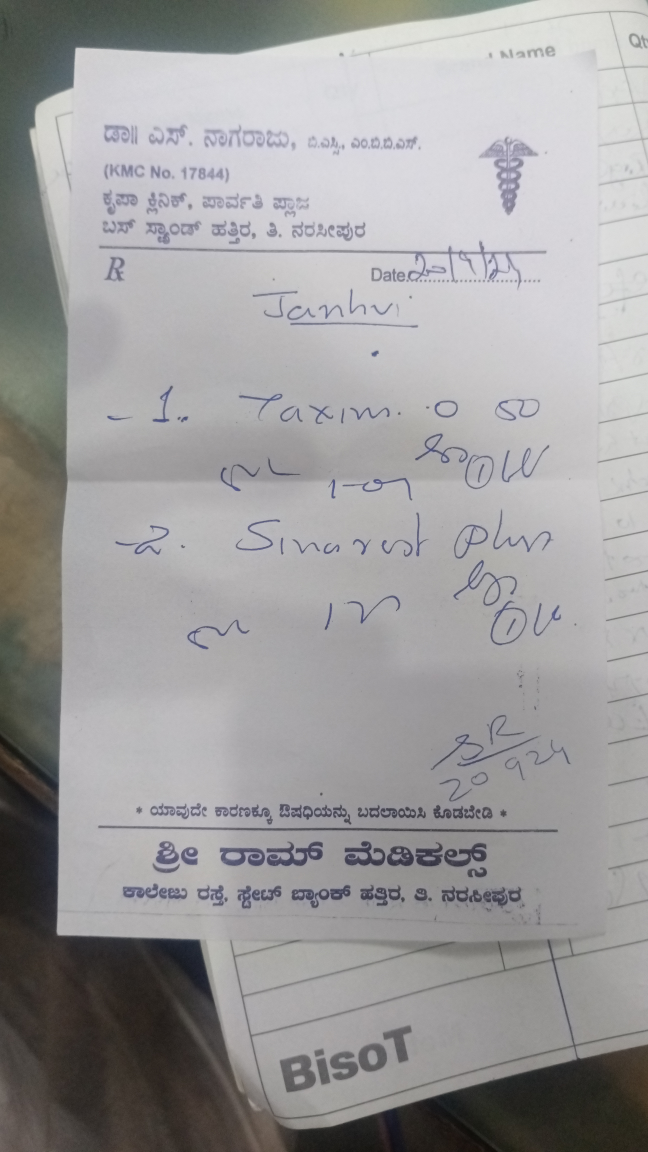 Name
Qt
ಡಾ|| ಎಸ್. ನಾಗರಾಜು, ಬಿ.ಎಸ್ಸಿ, ಎಂ.ಬಿ.ಬಿ.ಎಸ್.
(KMC No. 17844)
ಕೃಪಾ ಕ್ಲಿನಿಕ್, ಪಾರ್ವತಿ ಪ್ಲಾಜ
ಬಸ್ ಸ್ಟ್ಯಾಂಡ್ ಹತ್ತಿರ, ತಿ. ನರಸೀಪುರ
Rx Date: 20/9/24
Janhvi
- 1. Taxim. O 50
- 2. Sinarest Plus
SR
20 9 24
* ಯಾವುದೇ ಕಾರಣಕ್ಕೂ ಔಷಧಿಯನ್ನು ಬದಲಾಯಿಸಿ ಕೊಡಬೇಡಿ *
ಶ್ರೀ ರಾಮ್ ಮೆಡಿಕಲ್ಸ್
ಕಾಲೇಜು ರಸ್ತೆ, ಸ್ಟೇಟ್ ಬ್ಯಾಂಕ್ ಹತ್ತಿರ, ತಿ. ನರಸೀಪುರ
BisoT